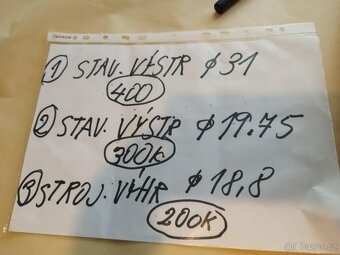 ① STAV. VÝSTR ϕ 31
400
② STAV. VÝSTR ϕ 19.75
300K
③ STROJ. VÝHR ϕ 18,8
200K